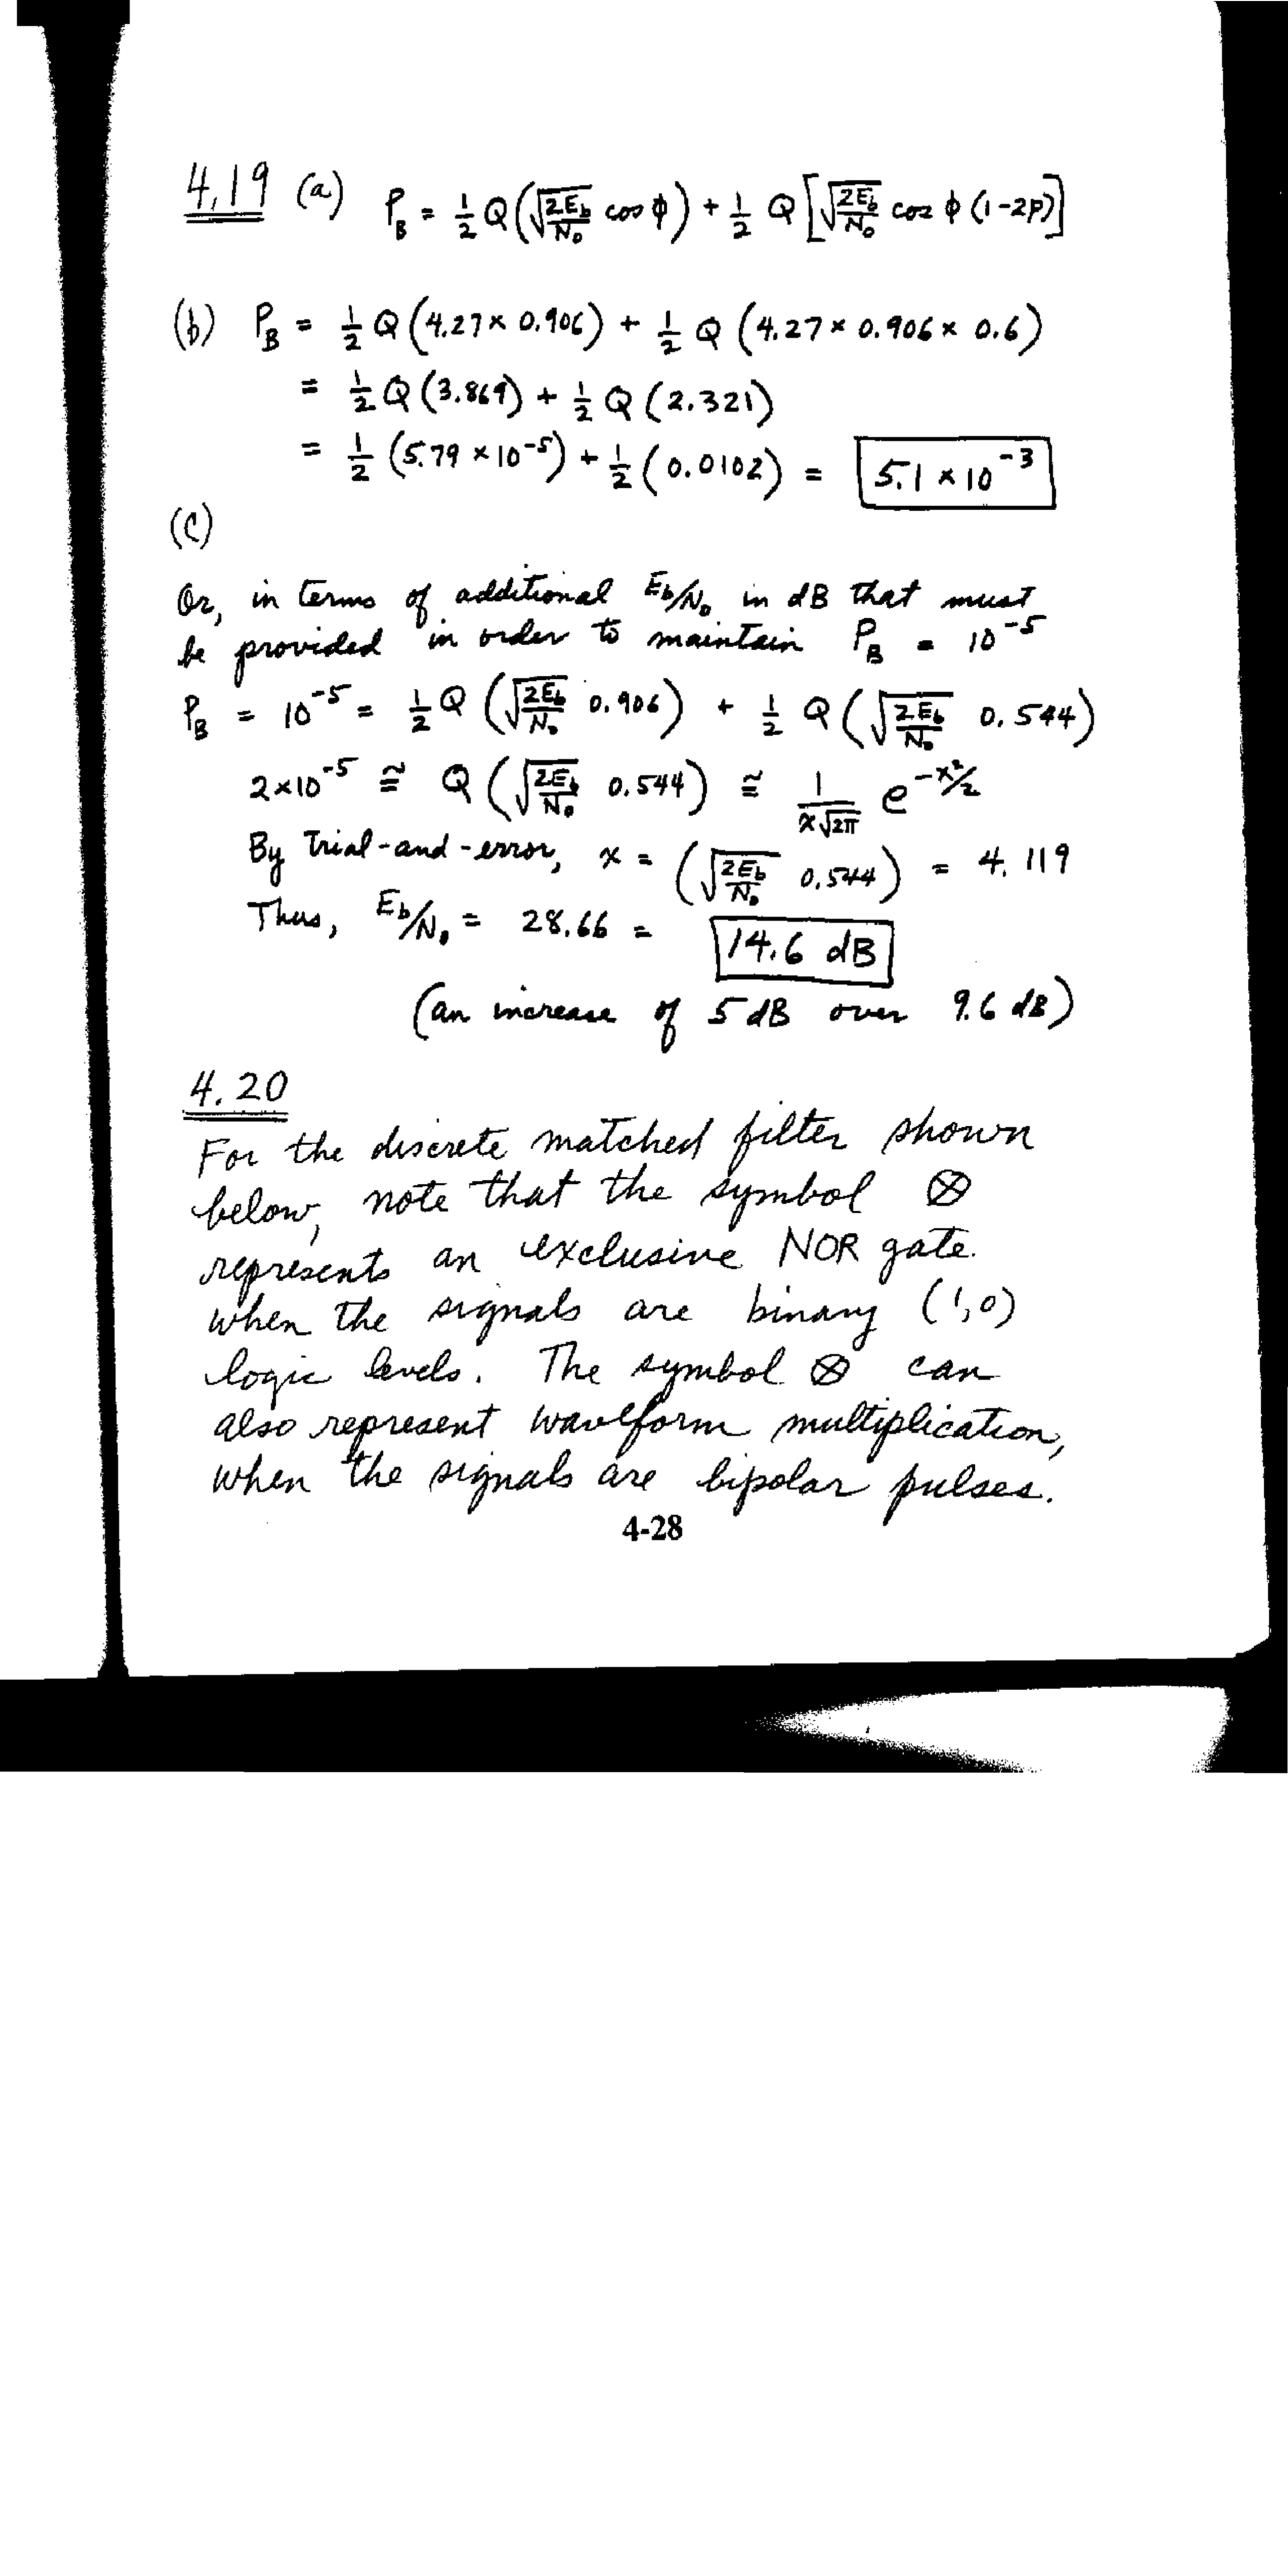 4.19 (a) P_B = 1/2 Q(√(2E_b/N_0) cos φ) + 1/2 Q[√(2E_b/N_0) cos φ (1-2p)]
(b) P_B = 1/2 Q(4.27 × 0.906) + 1/2 Q(4.27 × 0.906 × 0.6)
= 1/2 Q(3.869) + 1/2 Q(2.321)
= 1/2 (5.79 × 10^-5) + 1/2 (0.0102) = 5.1 × 10^-3
(c)
Or, in terms of additional E_b/N_0 in dB that must
be provided in order to maintain P_B = 10^-5
P_B = 10^-5 = 1/2 Q(√(2E_b/N_0) 0.906) + 1/2 Q(√(2E_b/N_0) 0.544)
2×10^-5 ≅ Q(√(2E_b/N_0) 0.544) ≅ 1/(x√(2π)) e^(-x²/2)
By trial-and-error, x = (√(2E_b/N_0) 0.544) = 4.119
Thus, E_b/N_0 = 28.66 = 14.6 dB
(an increase of 5 dB over 9.6 dB)
4.20
For the discrete matched filter shown
below, note that the symbol ⊗
represents an exclusive NOR gate.
when the signals are binary (1,0)
logic levels. The symbol ⊗ can
also represent waveform multiplication,
when the signals are bipolar pulses.
4-28